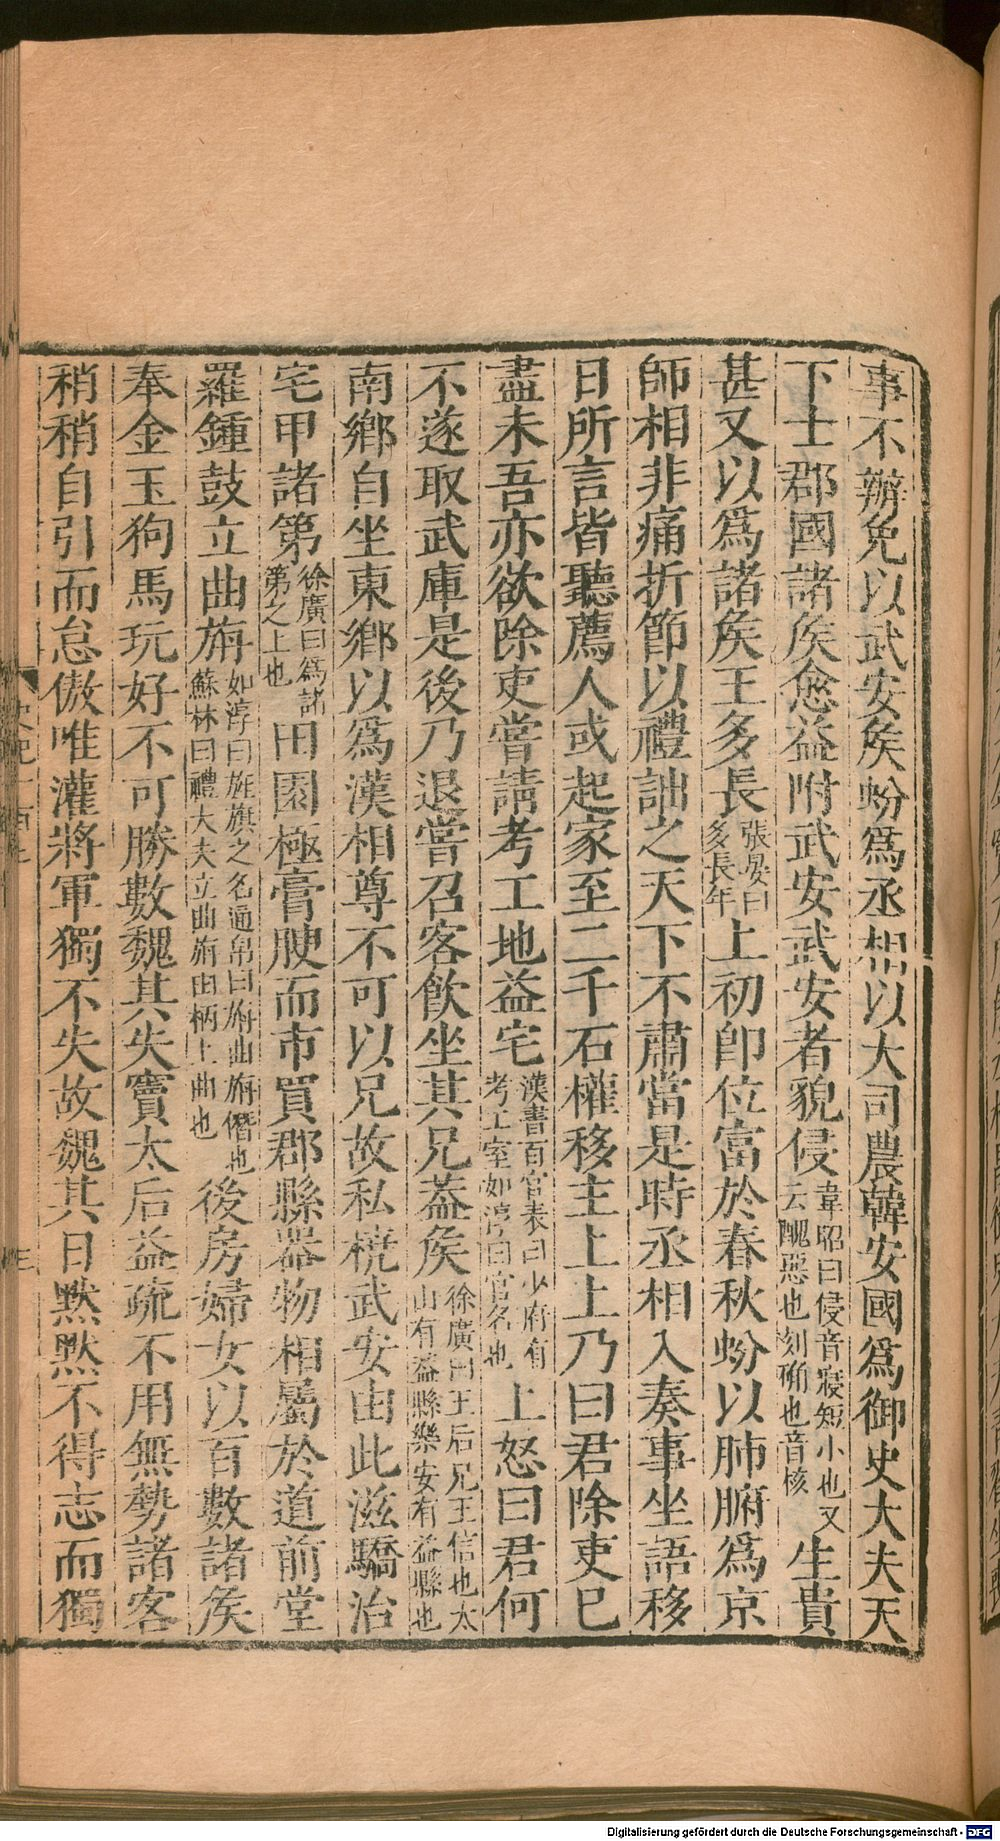 事不辦免以武安矦蚡爲丞相以大司農韓安國爲御史大夫天
下士郡國諸矦愈益附武安武安者貌侵韋昭曰侵音寢短小也又云醜惡也刻确也音核生貴
甚又以爲諸矦王多長張晏曰多長年上初卽位富於春秋蚡以肺腑爲京
師相非痛折節以禮詘之天下不肅當是時丞相入奏事坐語移
日所言皆聽薦人或起家至二千石權移主上上乃曰君除吏已
盡未吾亦欲除吏嘗請考工地益宅漢書百官表曰少府有考工室如淳曰官名也上怒曰君何
不遂取武庫是後乃退嘗召客飮坐其兄蓋矦徐廣曰王后兄王信也太山有蓋縣樂安有益縣也
南鄉自坐東鄉以爲漢相尊不可以兄故私橈武安由此滋驕治
宅甲諸第徐廣曰爲諸第之上也田園極膏腴而市買郡縣器物相屬於道前堂
羅鍾鼓立曲旃如淳曰旌旗之名通帛曰旃曲旃僭也蘇林曰禮大夫立曲旃曲柄上曲也後房婦女以百數諸矦
奉金玉狗馬玩好不可勝數魏其失竇太后益疏不用無勢諸客
稍稍自引而怠傲唯灌將軍獨不失故魏其日默默不得志而獨
Digitalisierung gefördert durch die Deutsche Forschungsgemeinschaft - DFG